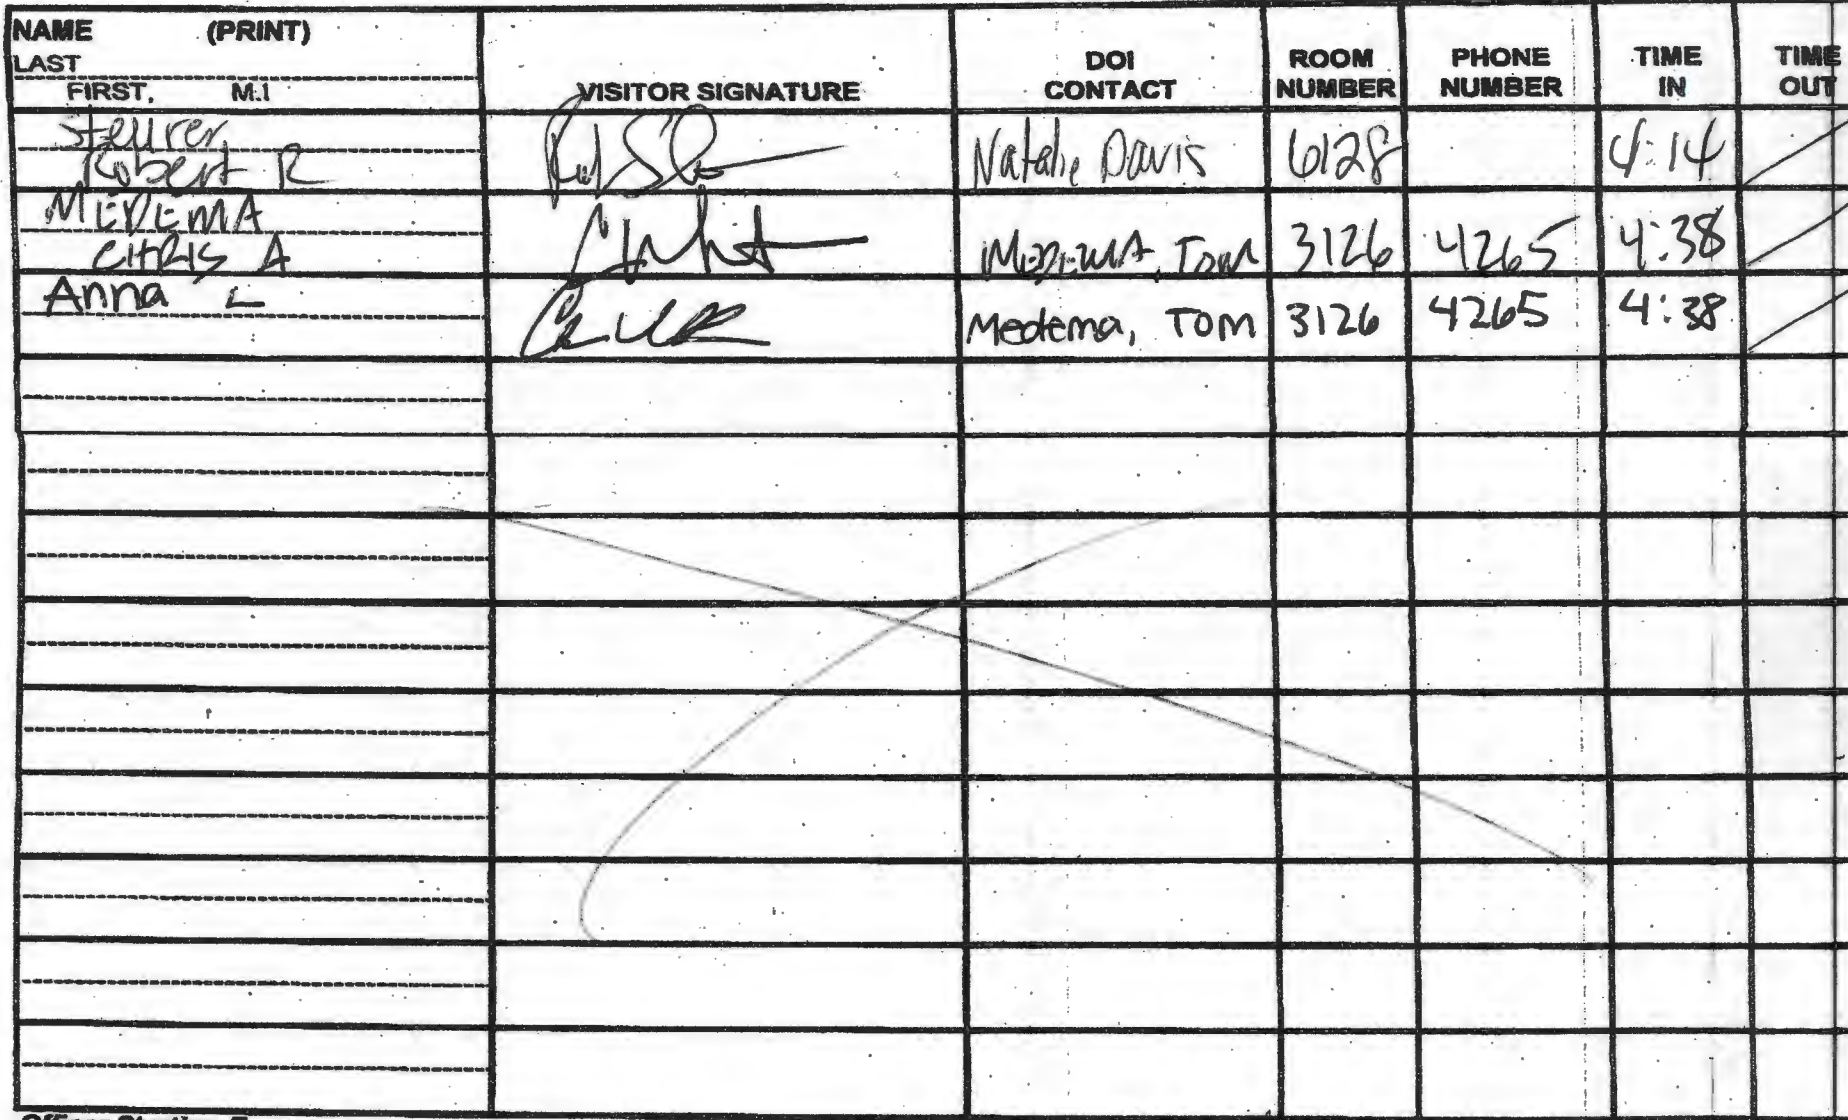 NAME (PRINT)
LAST
FIRST, M.I
VISITOR SIGNATURE
DOI
CONTACT
ROOM
NUMBER
PHONE
NUMBER
TIME
IN
TIME
OUT
Steurer,
Robert R
Natalie Davis 6128 4:14
MEDEMA
CHRIS A
MEDEMA, Tom 3126 4265 4:38
Anna L
Medema, Tom 3126 4265 4:38